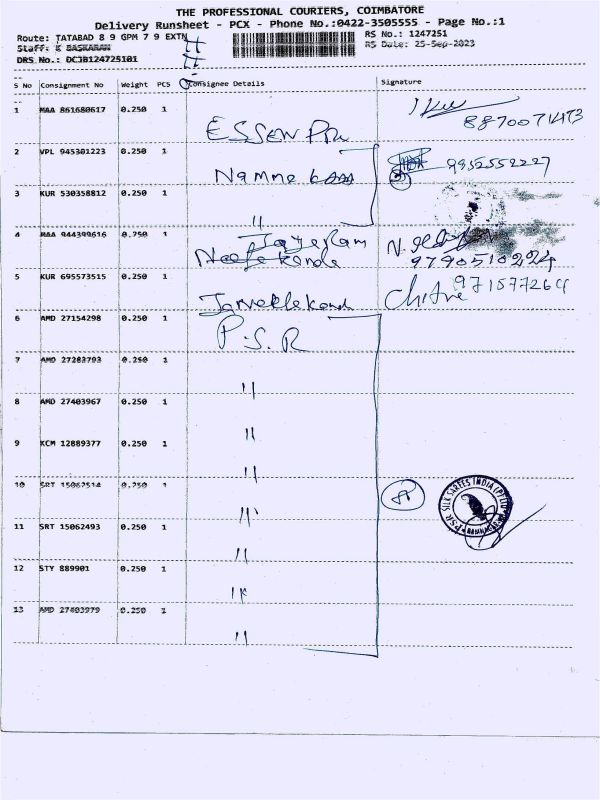 THE PROFESSIONAL COURIERS, COIMBATORE
Delivery Runsheet - PCX - Phone No.:0422-3505555 - Page No.:1
Route: TATABAD 8 9 GPM 7 9 EXTN
RS No.: 1247251
Staff: K BASKARAN
RS Date: 25-Sep-2023
DRS No.: DCJB124725101
S No Consignment No Weight PCS Consignee Details Signature
1 MAA 861680617 0.250 1
ESSEN
8870071473
2 VPL 945301223 0.250 1
9952552227
3 KUR 530358812 0.250 1
"
4 MAA 944399616 0.250 1
5 KUR 695573515 0.250 1
Chitra
6 AMD 27154298 0.250 1
P.S.R
7 AMD 27283793 0.250 1
"
8 AMD 27403967 0.250 1
"
9 KCM 12889377 0.250 1
"
10 SRT 15062514 0.250 1
"
11 SRT 15062493 0.250 1
"
12 STY 889901 0.250 1
"
13 AMD 27403979 0.250 1
"
PSR SILK SAREES INDIA (P) LTD